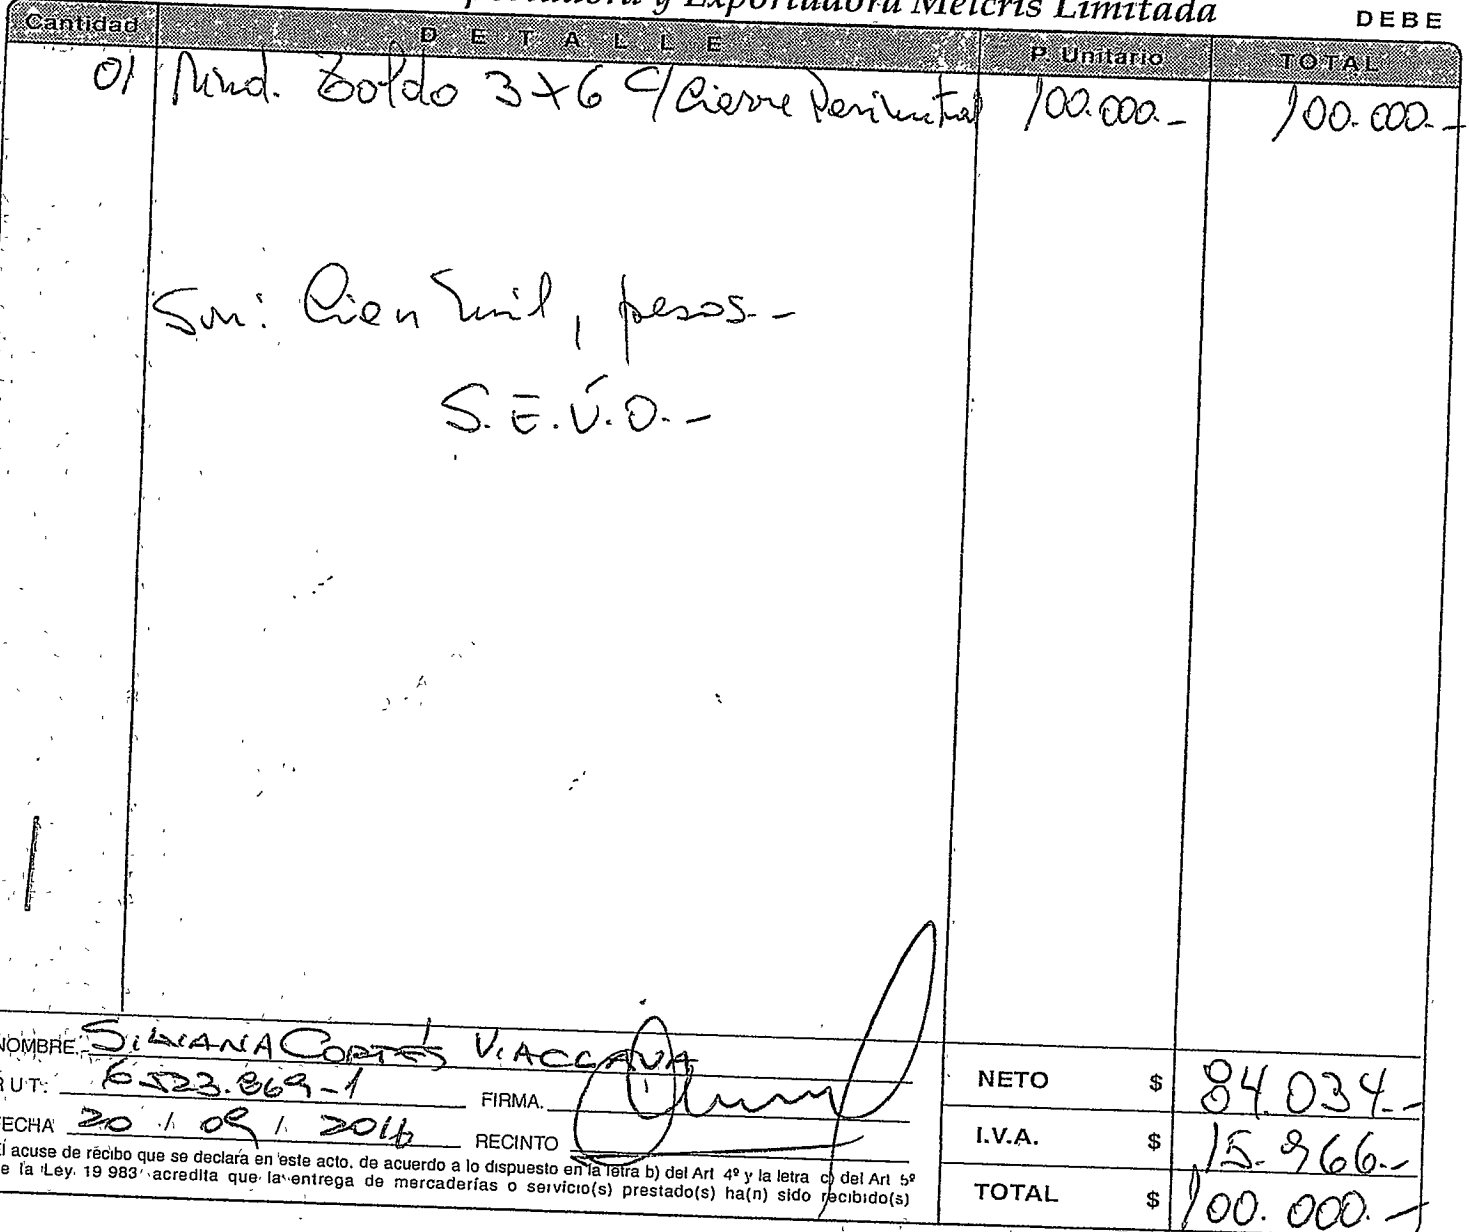 y Exportadora Melcris Limitada
DEBE
Cantidad DETALLE P. Unitario TOTAL
01 Toldo 3x6 c/ Cierre Perimetral 100.000.- 100.000.-
Son: Cien mil, pesos.-
S.E.U.O.-
NOMBRE: SILVIANA CORTÉS VIACCAVA
R.U.T: 6.523.869-1 FIRMA.
FECHA 20 / 09 / 2016 RECINTO
El acuse de recibo que se declara en este acto, de acuerdo a lo dispuesto en la letra b) del Art 4º y la letra c) del Art 5º
de la Ley. 19 983 acredita que la entrega de mercaderías o servicio(s) prestado(s) ha(n) sido recibido(s)
NETO $ 84.034.-
I.V.A. $ 15.966.-
TOTAL $ 100.000.-